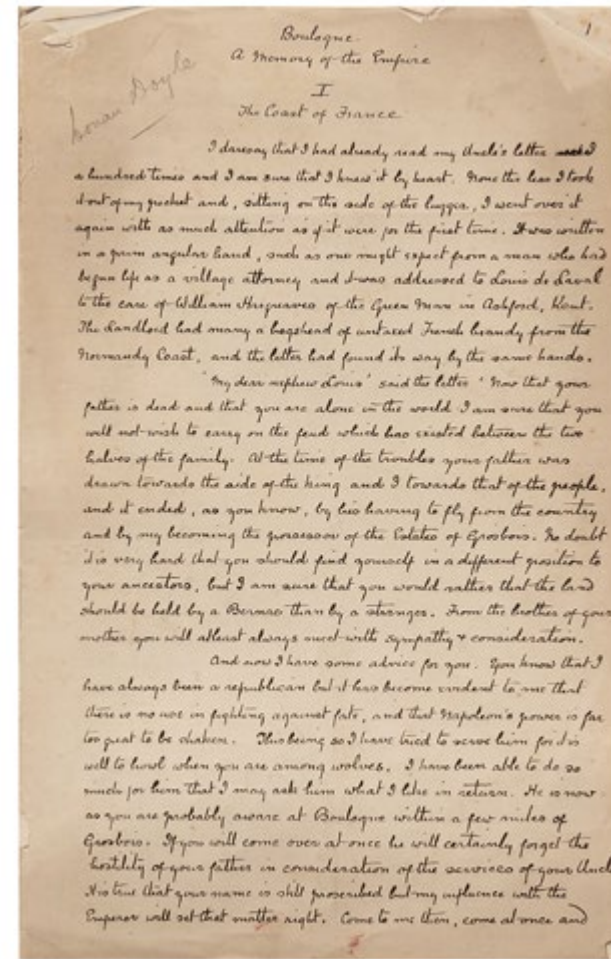 1
Boulogne.
A Memory of the Empire
Conan Doyle
I
The Coast of France
I daresay that I had already read my Uncle's letter
a hundred times and I am sure that I knew it by heart. None the less I took
it out of my pocket and, sitting on the side of the lugger, I went over it
again with as much attention as if it were for the first time. It was written
in a prim angular hand, such as one might expect from a man who had
begun life as a village attorney and it was addressed to Louis de Laval
to the care of William Hargreaves of the Green Man in Ashford, Kent.
The Landlord had many a hogshead of untaxed French brandy from the
Normandy Coast, and the letter had found its way by the same hands.
"My dear nephew Louis" said the letter "Now that your
father is dead and that you are alone in the world I am sure that you
will not wish to carry on the feud which has existed between the two
halves of the family. At the time of the troubles your father was
drawn towards the side of the King and I towards that of the people,
and it ended, as you know, by his having to fly from the country
and by my becoming the possessor of the Estates of Grosbois. No doubt
it is very hard that you should find yourself in a different position to
your ancestors, but I am sure that you would rather that the land
should be held by a Bernac than by a stranger. From the brother of your
mother you will at least always meet with sympathy & consideration.
And now I have some advice for you. You know that I
have always been a republican but it has become evident to me that
there is no use in fighting against fate, and that Napoleon's power is far
too great to be shaken. This being so I have tried to serve him for it is
well to howl when you are among wolves. I have been able to do so
much for him that I may ask him what I like in return. He is now
as you are probably aware at Boulogne within a few miles of
Grosbois. If you will come over at once he will certainly forget the
hostility of your father in consideration of the services of your Uncle
It is true that your name is still proscribed but my influence with the
Emperor will set that matter right. Come to me then, come at once and